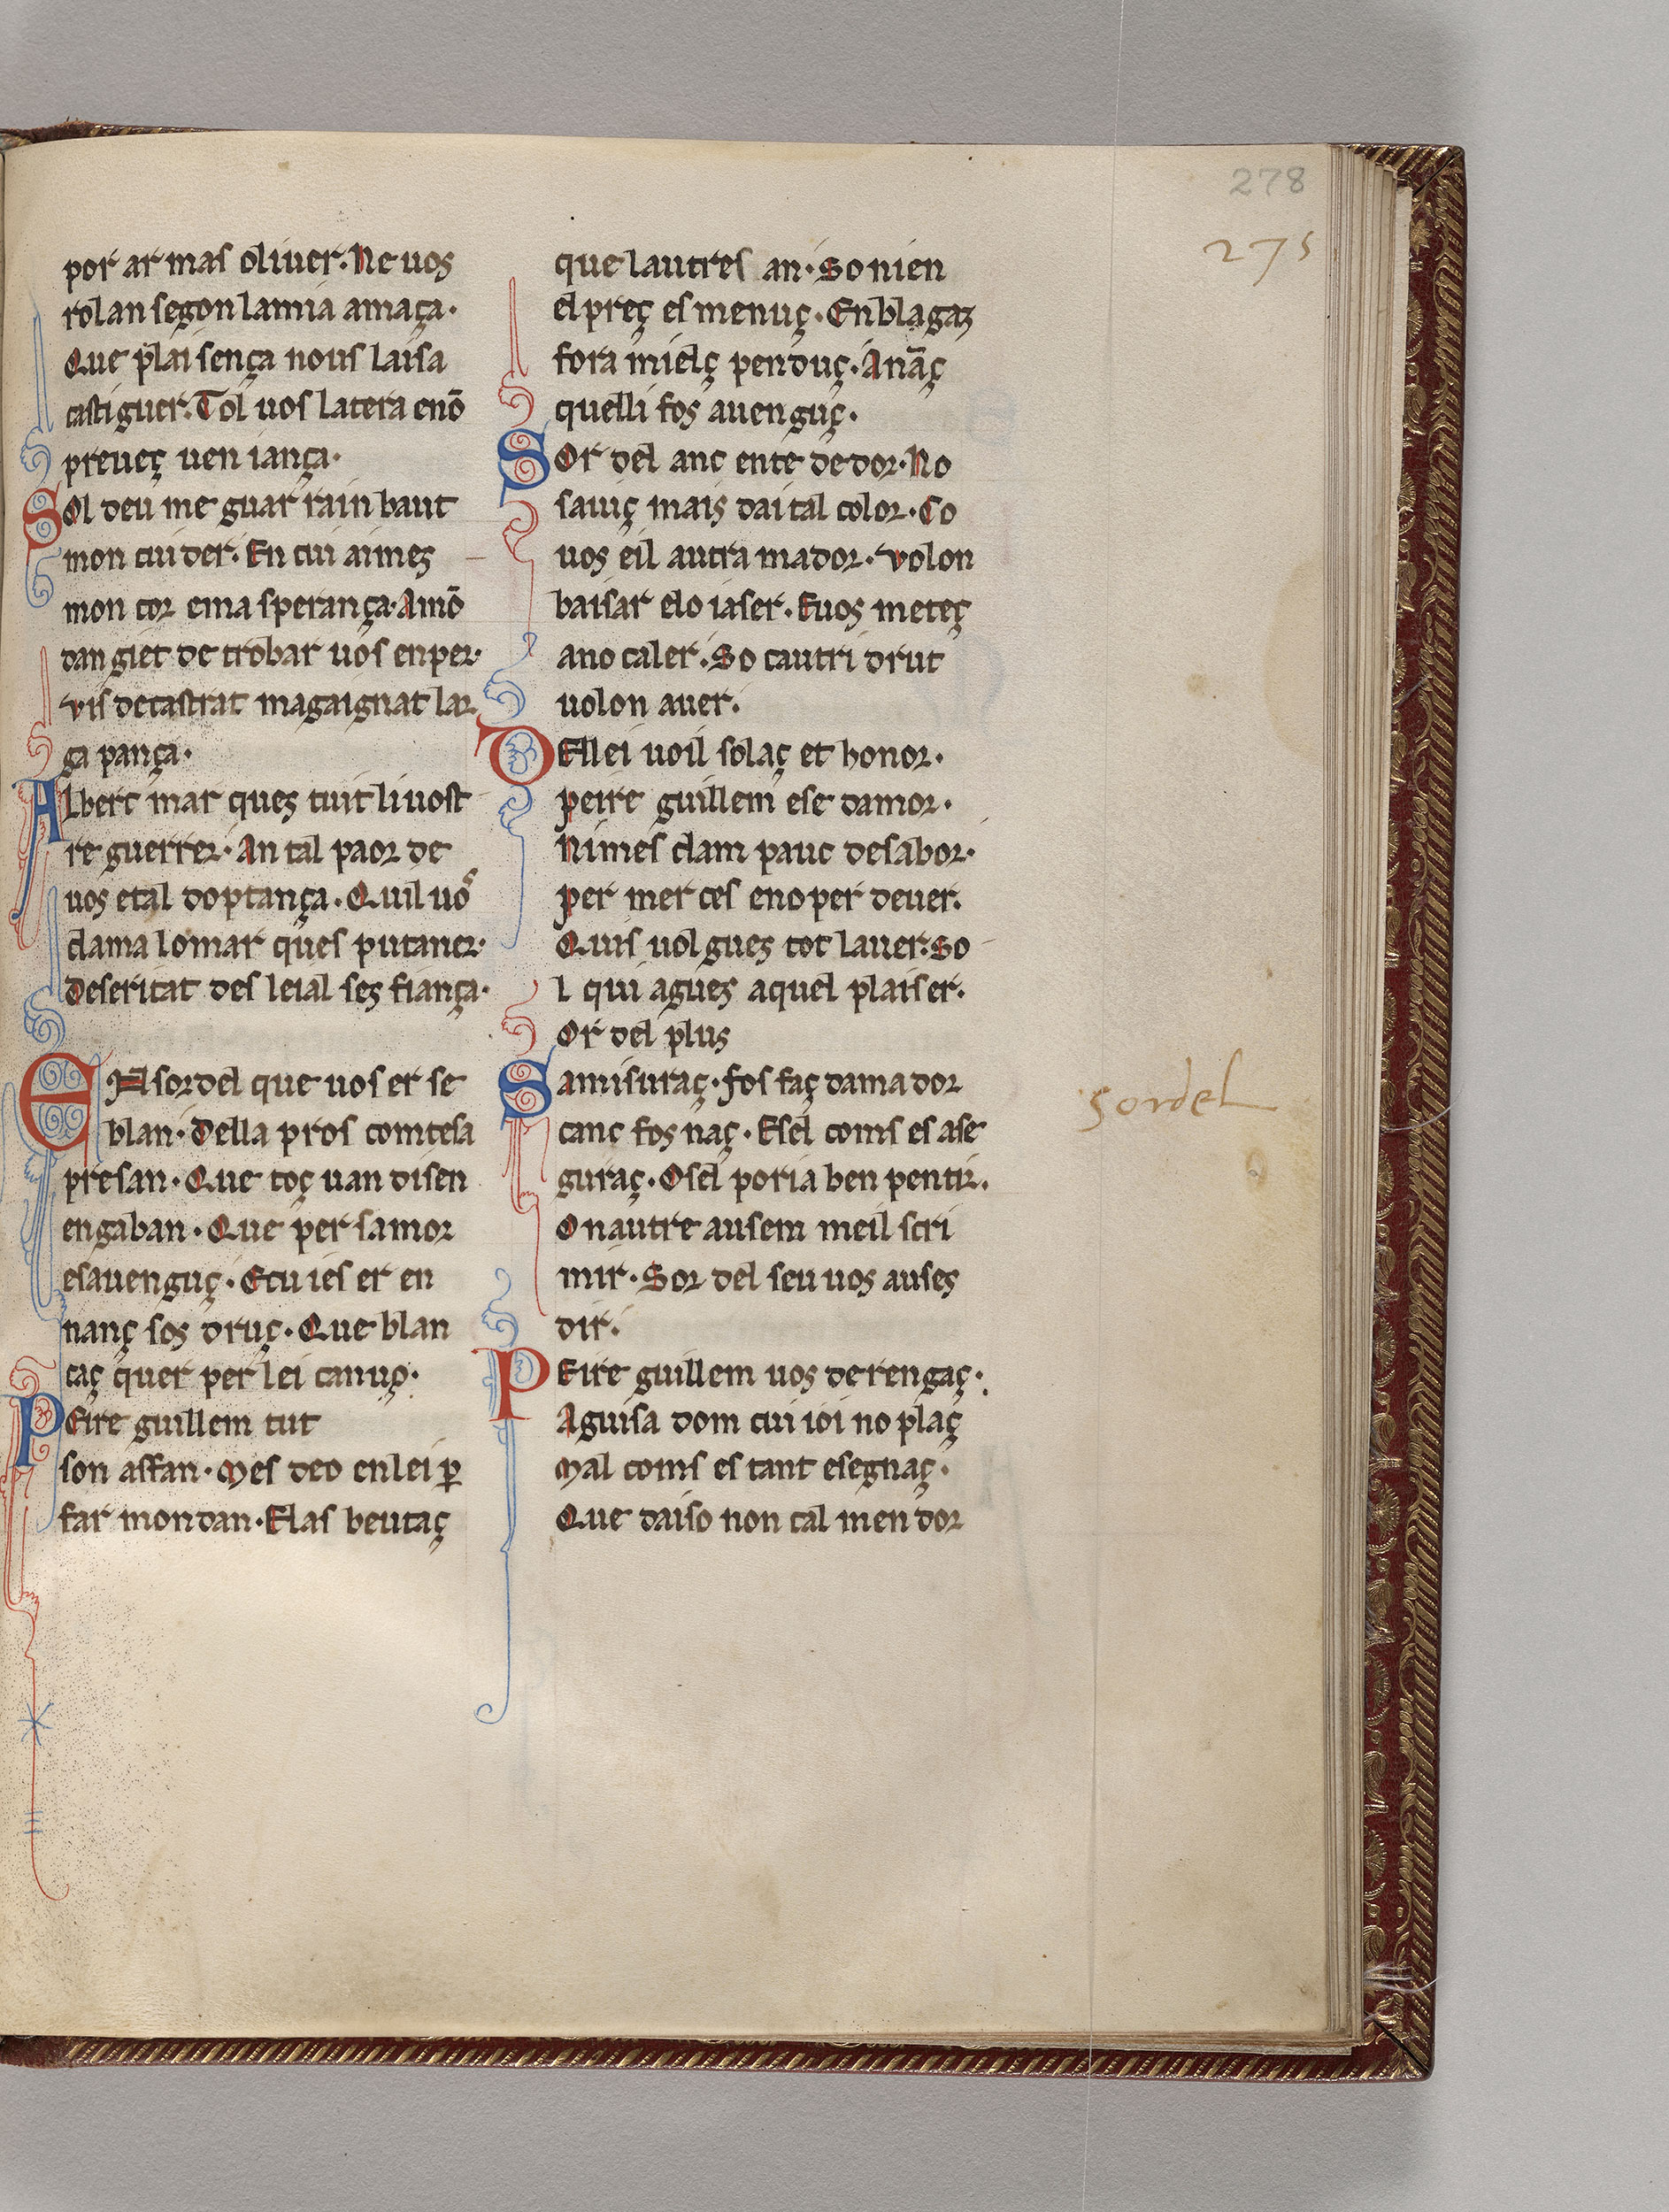 278
275
por ar mas oliuer. Ne uos
rolan segon la mia amaça·
Que plaisença nous laisa
castiguer. Tol uos la tera e nō
preueç uen iança·
Sol deu me guar rain baut
mon cui der. En cui ai mes
mon cor e ma sperança· A mō
dan giet de trobar uos en per·
uis de castrat magaignat lar
ga pança·
Albert mar ques tuit li uost
re guerrer· An tal paor de
uos e tal doptança. Quil uos
clama lo mar ques putaner·
deseritat des leial ses fiança·
EN sordel que uos er se
blan· Della pros comtesa
presan· Que toç uan disen
en gaban· Que per samor
es auenguç· E cuies er en
nanç ses druç· Que blan
caç quer per lei canuç·
Peire guillem tut
son affan· Mes deo en lei p̱
far mon dan· E las beutaç
que lautres an· So nien
el preç es menuç· En blagaz
fora mielç penduç· Anāç
quelli fos auenguç·
Sor del anc ente de dor· No
sauiç mais dai tal color· Co
uos eil autra mador· volon
baisar elo iaser. E uos meteç
a no caler. So cautri drut
uolon auer.
Dellei uoil solaç et honor·
peire guillem e se damor·
Nimes clam pauc de sabor·
per mer ces e no per deuer.
Quis uol gues tot lauer. So
l qui agues aquel plaiser.
Or del plus
Samisuraç· fos faç dama dor
canc fos naç· E sel coms es ase
guraç· O sel poria ben pentir.
O nautre ausem meil scri
mir· Sor del seu uos auses
dir.
sordel
Peire guillem uos derengaç·
A guisa dom cui ioi no plaç
Mal coms es tant esegnaç·
Que daiso non cal men dor